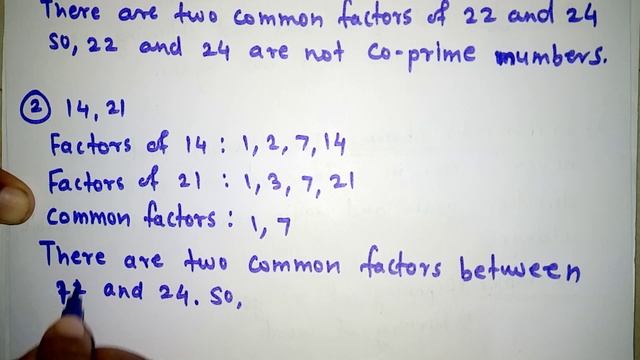 There are two common factors of 22 and 24
So, 22 and 24 are not co-prime numbers.
② 14, 21
Factors of 14 : 1, 2, 7, 14
Factors of 21 : 1, 3, 7, 21
common factors : 1, 7
There are two common factors between
and 24. So,